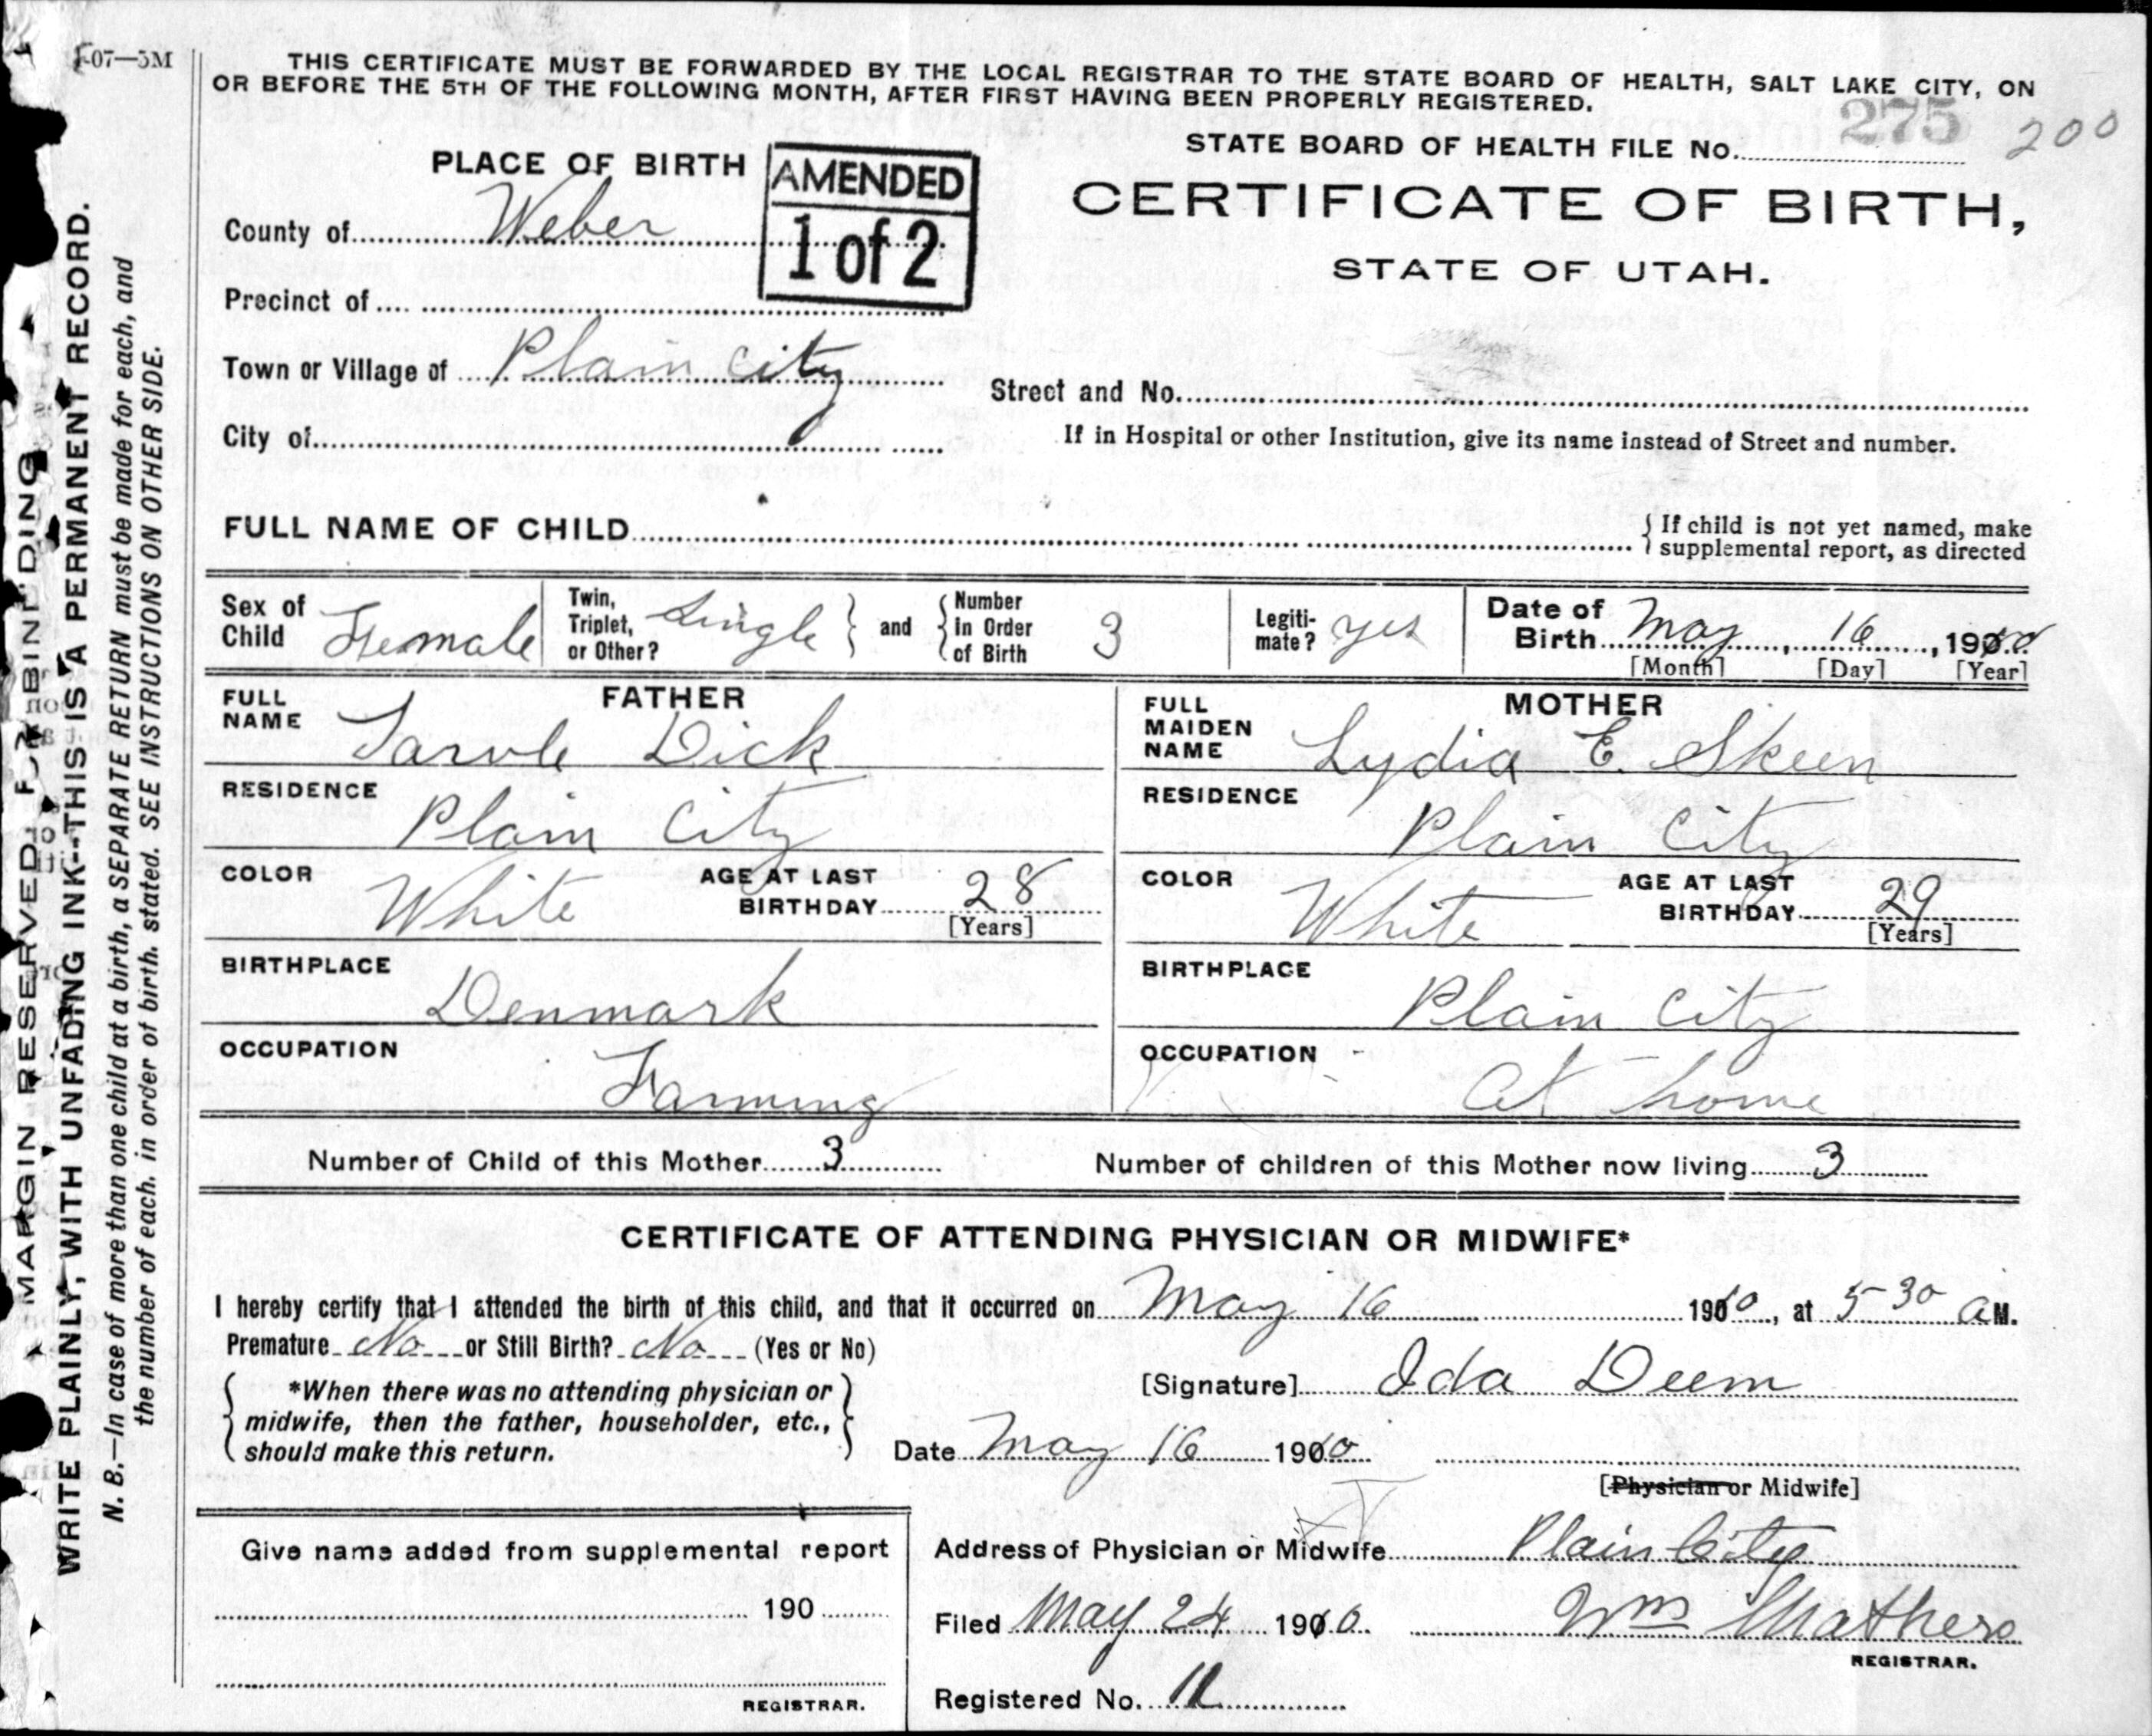 F-07—5M
THIS CERTIFICATE MUST BE FORWARDED BY THE LOCAL REGISTRAR TO THE STATE BOARD OF HEALTH, SALT LAKE CITY, ON
OR BEFORE THE 5TH OF THE FOLLOWING MONTH, AFTER FIRST HAVING BEEN PROPERLY REGISTERED.
STATE BOARD OF HEALTH FILE No. 275 200
PLACE OF BIRTH
AMENDED
1 of 2
CERTIFICATE OF BIRTH,
STATE OF UTAH.
County of Weber
Precinct of
Town or Village of Plain City
Street and No.
City of
If in Hospital or other Institution, give its name instead of Street and number.
FULL NAME OF CHILD
{ If child is not yet named, make
supplemental report, as directed
Sex of Child Female
Twin, Triplet, or Other? Single } and { Number in Order of Birth 3
Legiti-mate? yes
Date of Birth May 16, 1910
[Month] [Day] [Year]
FATHER
FULL NAME Dick
RESIDENCE Plain City
COLOR White AGE AT LAST BIRTHDAY 28
[Years]
BIRTHPLACE Denmark
OCCUPATION Farming
MOTHER
FULL MAIDEN NAME Lydia E. Skeen
RESIDENCE Plain City
COLOR White AGE AT LAST BIRTHDAY 29
[Years]
BIRTHPLACE Plain City
OCCUPATION At home
Number of Child of this Mother 3
Number of children of this Mother now living 3
CERTIFICATE OF ATTENDING PHYSICIAN OR MIDWIFE*
I hereby certify that I attended the birth of this child, and that it occurred on May 16 1910, at 5 30 a M.
Premature No or Still Birth? No (Yes or No)
{ *When there was no attending physician or
midwife, then the father, householder, etc.,
should make this return. }
[Signature] Ida Deem
Date May 16 1910
[Physician or Midwife]
Give name added from supplemental report
190
REGISTRAR.
Address of Physician or Midwife Plain City
Filed May 24 1910 Wm Mathers
REGISTRAR.
Registered No. 11
MARGIN RESERVED FOR BINDING
WRITE PLAINLY, WITH UNFADING INK--THIS IS A PERMANENT RECORD.
N. B.—In case of more than one child at a birth, a SEPARATE RETURN must be made for each, and
the number of each, in order of birth, stated. SEE INSTRUCTIONS ON OTHER SIDE.